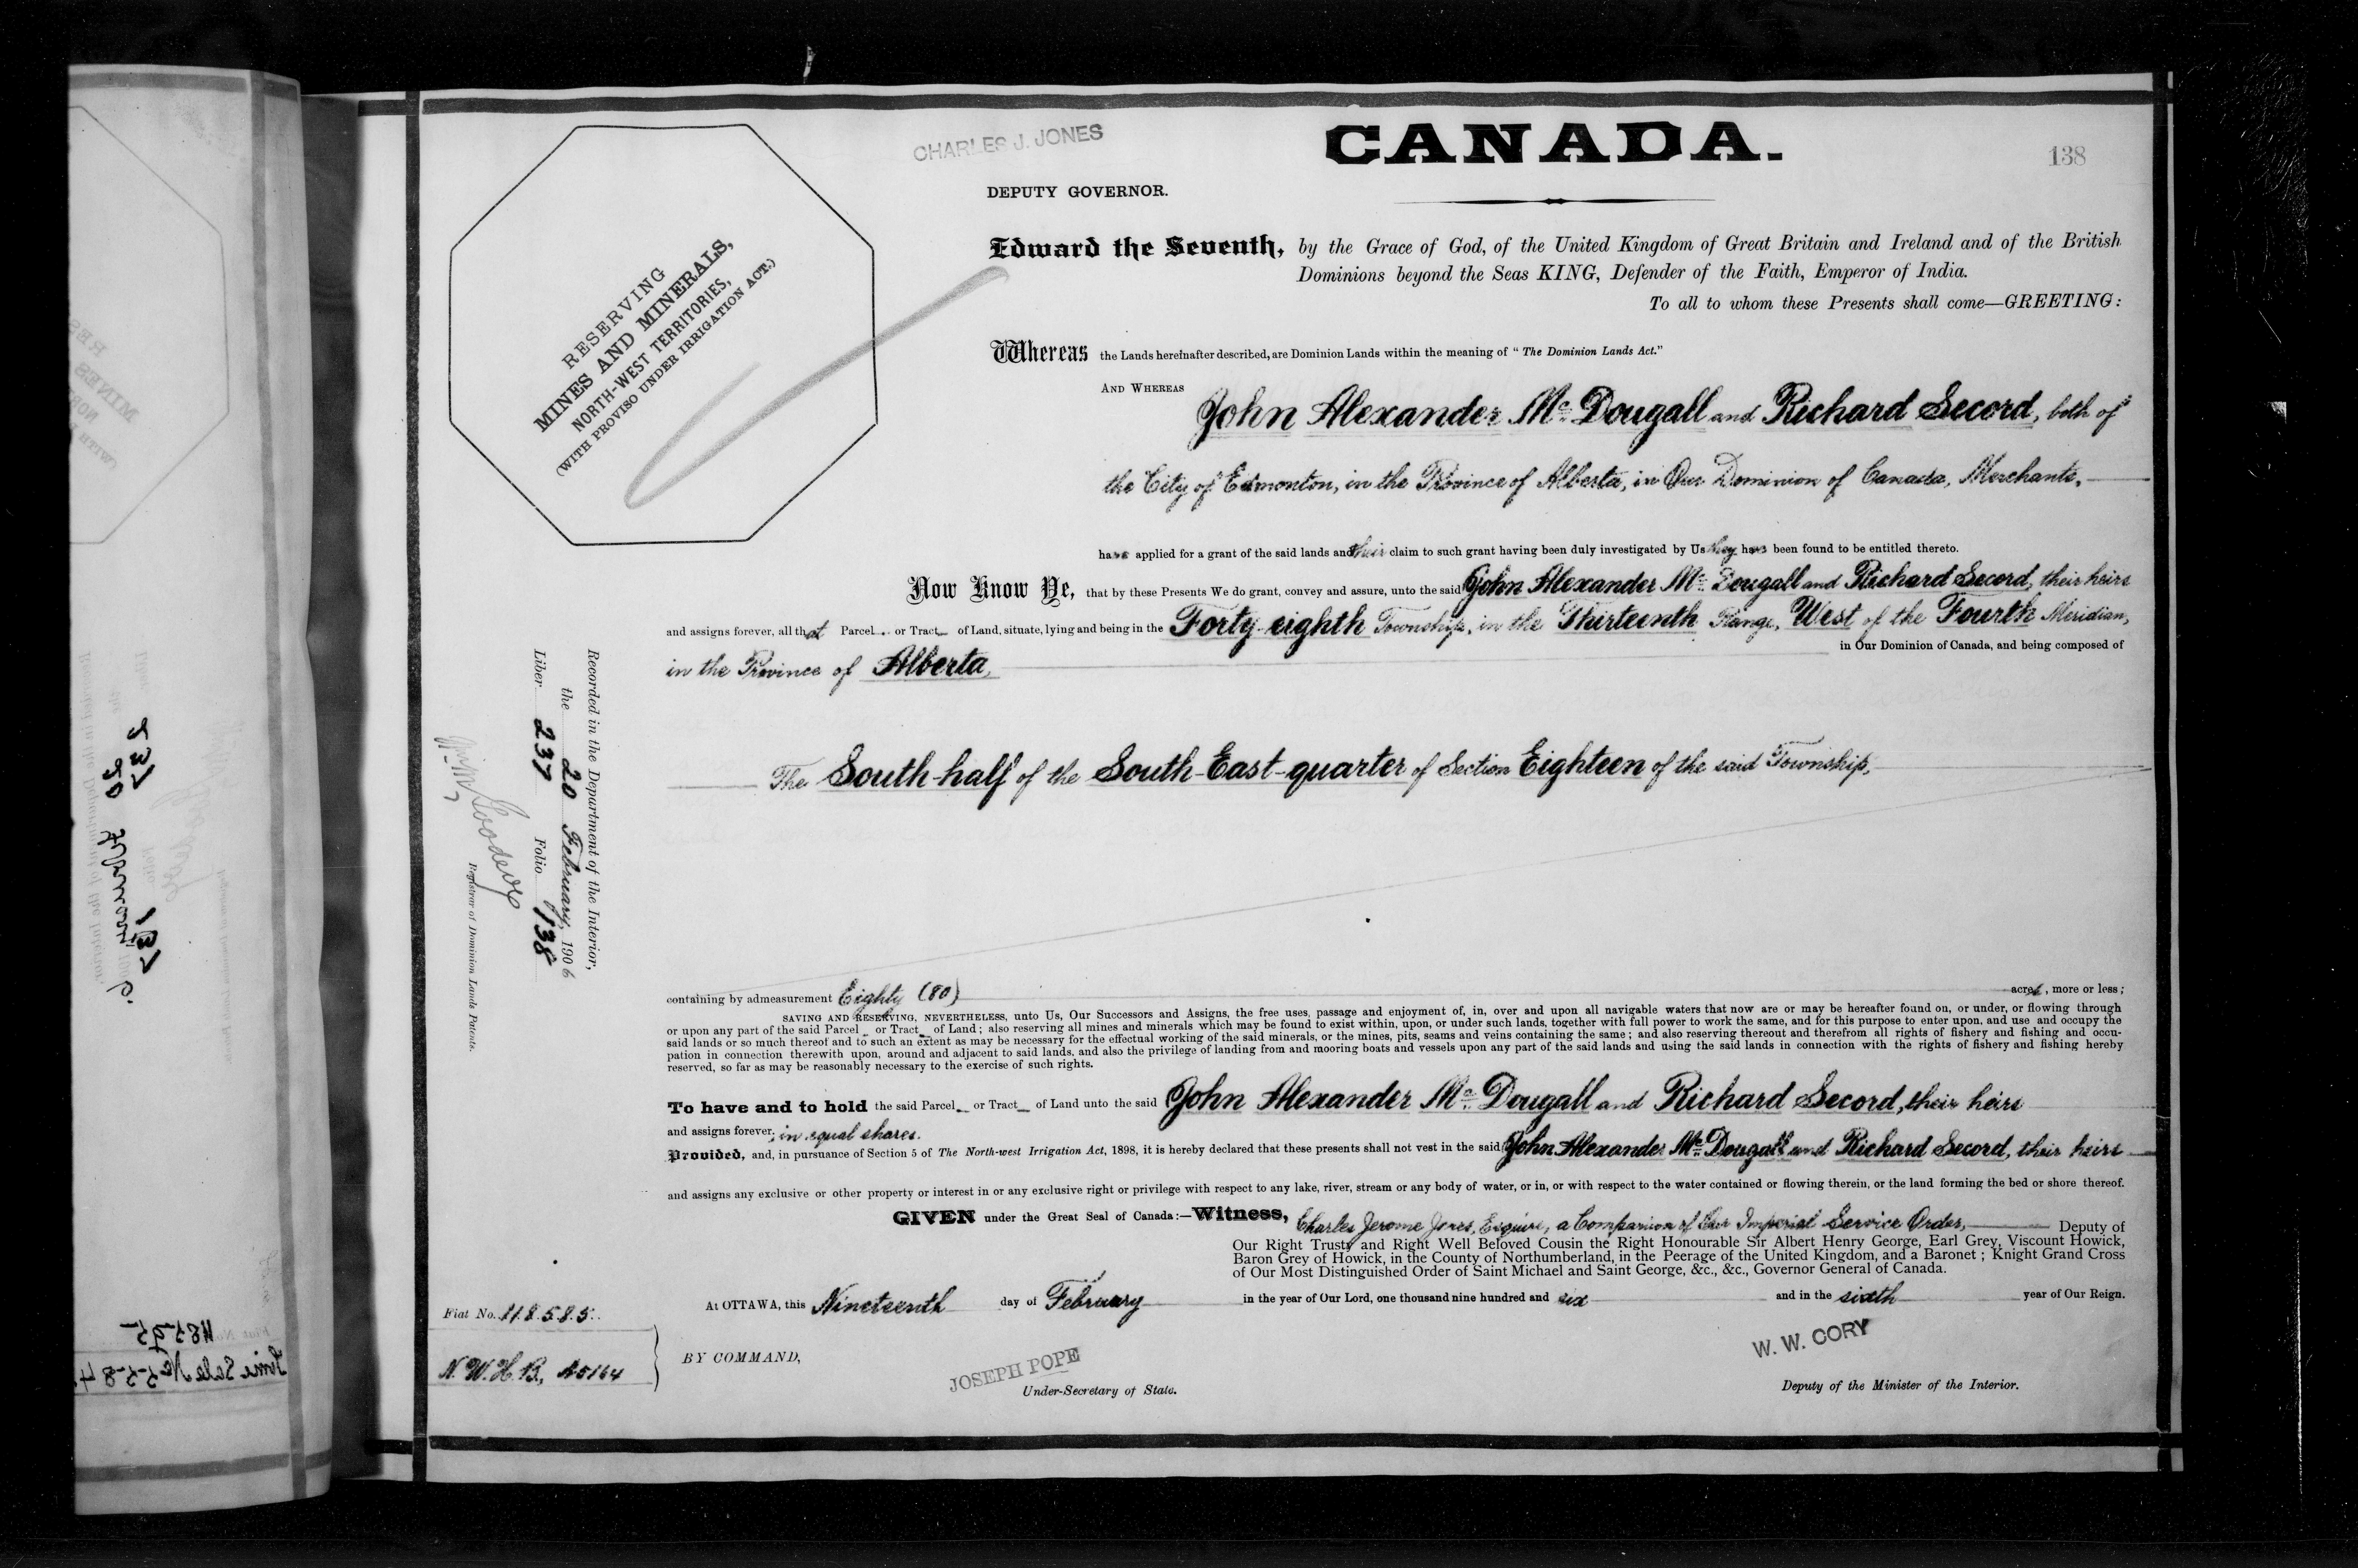 CHARLES J. JONES
CANADA.
138
DEPUTY GOVERNOR.
RESERVING
MINES AND MINERALS,
NORTH-WEST TERRITORIES,
(WITH PROVISO UNDER IRRIGATION ACT.)
Edward the Seventh, by the Grace of God, of the United Kingdom of Great Britain and Ireland and of the British
Dominions beyond the Seas KING, Defender of the Faith, Emperor of India.
To all to whom these Presents shall come—GREETING:
Whereas the Lands hereinafter described, are Dominion Lands within the meaning of "The Dominion Lands Act."
AND WHEREAS
John Alexander Mc Dougall and Richard Secord, both of
the City of Edmonton, in the Province of Alberta, in Our Dominion of Canada, Merchants,
have applied for a grant of the said lands and their claim to such grant having been duly investigated by Us they have been found to be entitled thereto.
Now Know Ye, that by these Presents We do grant, convey and assure, unto the said John Alexander Mc Dougall and Richard Secord, their heirs
and assigns forever, all that Parcel or Tract of Land, situate, lying and being in the Forty-eighth Township, in the Thirteenth Range, West of the Fourth Meridian,
in the Province of Alberta, in Our Dominion of Canada, and being composed of
The South-half of the South-East-quarter of Section Eighteen of the said Township,
Recorded in the Department of the Interior,
the 20 February, 1906
Liber 237 Folio 138
Registrar of Dominion Lands Patents.
containing by admeasurement Eighty (80) acres, more or less;
SAVING AND RESERVING, NEVERTHELESS, unto Us, Our Successors and Assigns, the free uses, passage and enjoyment of, in, over and upon all navigable waters that now are or may be hereafter found on, or under, or flowing through
or upon any part of the said Parcel or Tract of Land; also reserving all mines and minerals which may be found to exist within, upon, or under such lands, together with full power to work the same, and for this purpose to enter upon, and use and occupy the
said lands or so much thereof and to such an extent as may be necessary for the effectual working of the said minerals, or the mines, pits, seams and veins containing the same; and also reserving thereout and therefrom all rights of fishery and fishing and occu-
pation in connection therewith upon, around and adjacent to said lands, and also the privilege of landing from and mooring boats and vessels upon any part of the said lands and using the said lands in connection with the rights of fishery and fishing hereby
reserved, so far as may be reasonably necessary to the exercise of such rights.
To have and to hold the said Parcel or Tract of Land unto the said John Alexander Mc Dougall and Richard Secord, their heirs
and assigns forever, in equal shares.
Provided, and, in pursuance of Section 5 of The North-west Irrigation Act, 1898, it is hereby declared that these presents shall not vest in the said John Alexander Mc Dougall and Richard Secord, their heirs
and assigns any exclusive or other property or interest in or any exclusive right or privilege with respect to any lake, river, stream or any body of water, or in, or with respect to the water contained or flowing therein, or the land forming the bed or shore thereof.
GIVEN under the Great Seal of Canada:—Witness, Charles Jerome Jones, Esquire, a Companion of Our Imperial Service Order, Deputy of
Our Right Trusty and Right Well Beloved Cousin the Right Honourable Sir Albert Henry George, Earl Grey, Viscount Howick,
Baron Grey of Howick, in the County of Northumberland, in the Peerage of the United Kingdom, and a Baronet; Knight Grand Cross
of Our Most Distinguished Order of Saint Michael and Saint George, &c., &c., Governor General of Canada.
At OTTAWA, this Nineteenth day of February in the year of Our Lord, one thousand nine hundred and six and in the sixth year of Our Reign.
Fiat No. 118585.
N.W.H.B, A5164
BY COMMAND,
JOSEPH POPE
Under-Secretary of State.
W. W. CORY
Deputy of the Minister of the Interior.